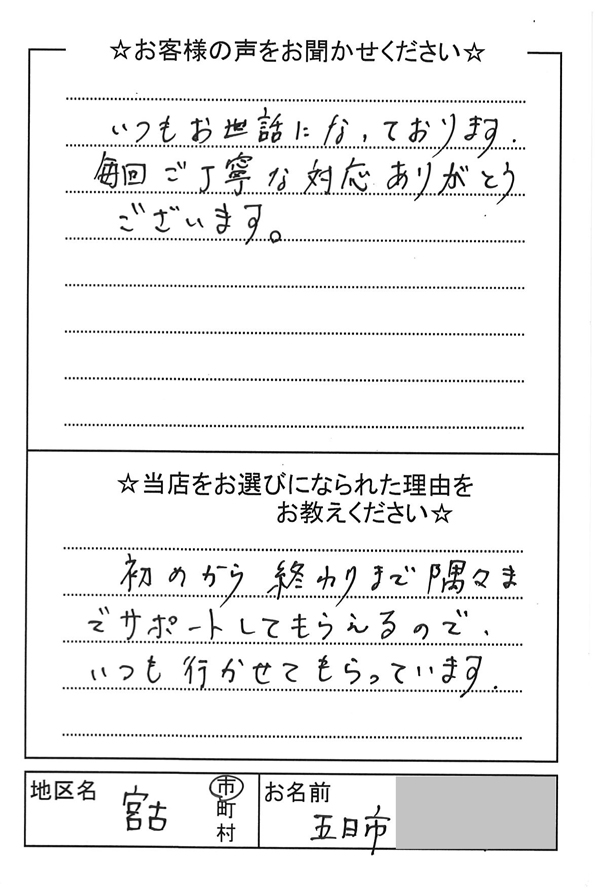 ☆お客様の声をお聞かせください☆
いつもお世話になっております.
毎回ご丁寧な対応ありがとう
ございます。
☆当店をお選びになられた理由を
お教えください☆
初めから終わりまで隅々ま
でサポートしてもらえるので、
いつも行かせてもらっています.
地区名 宮古 市
町
村
お名前 五日市